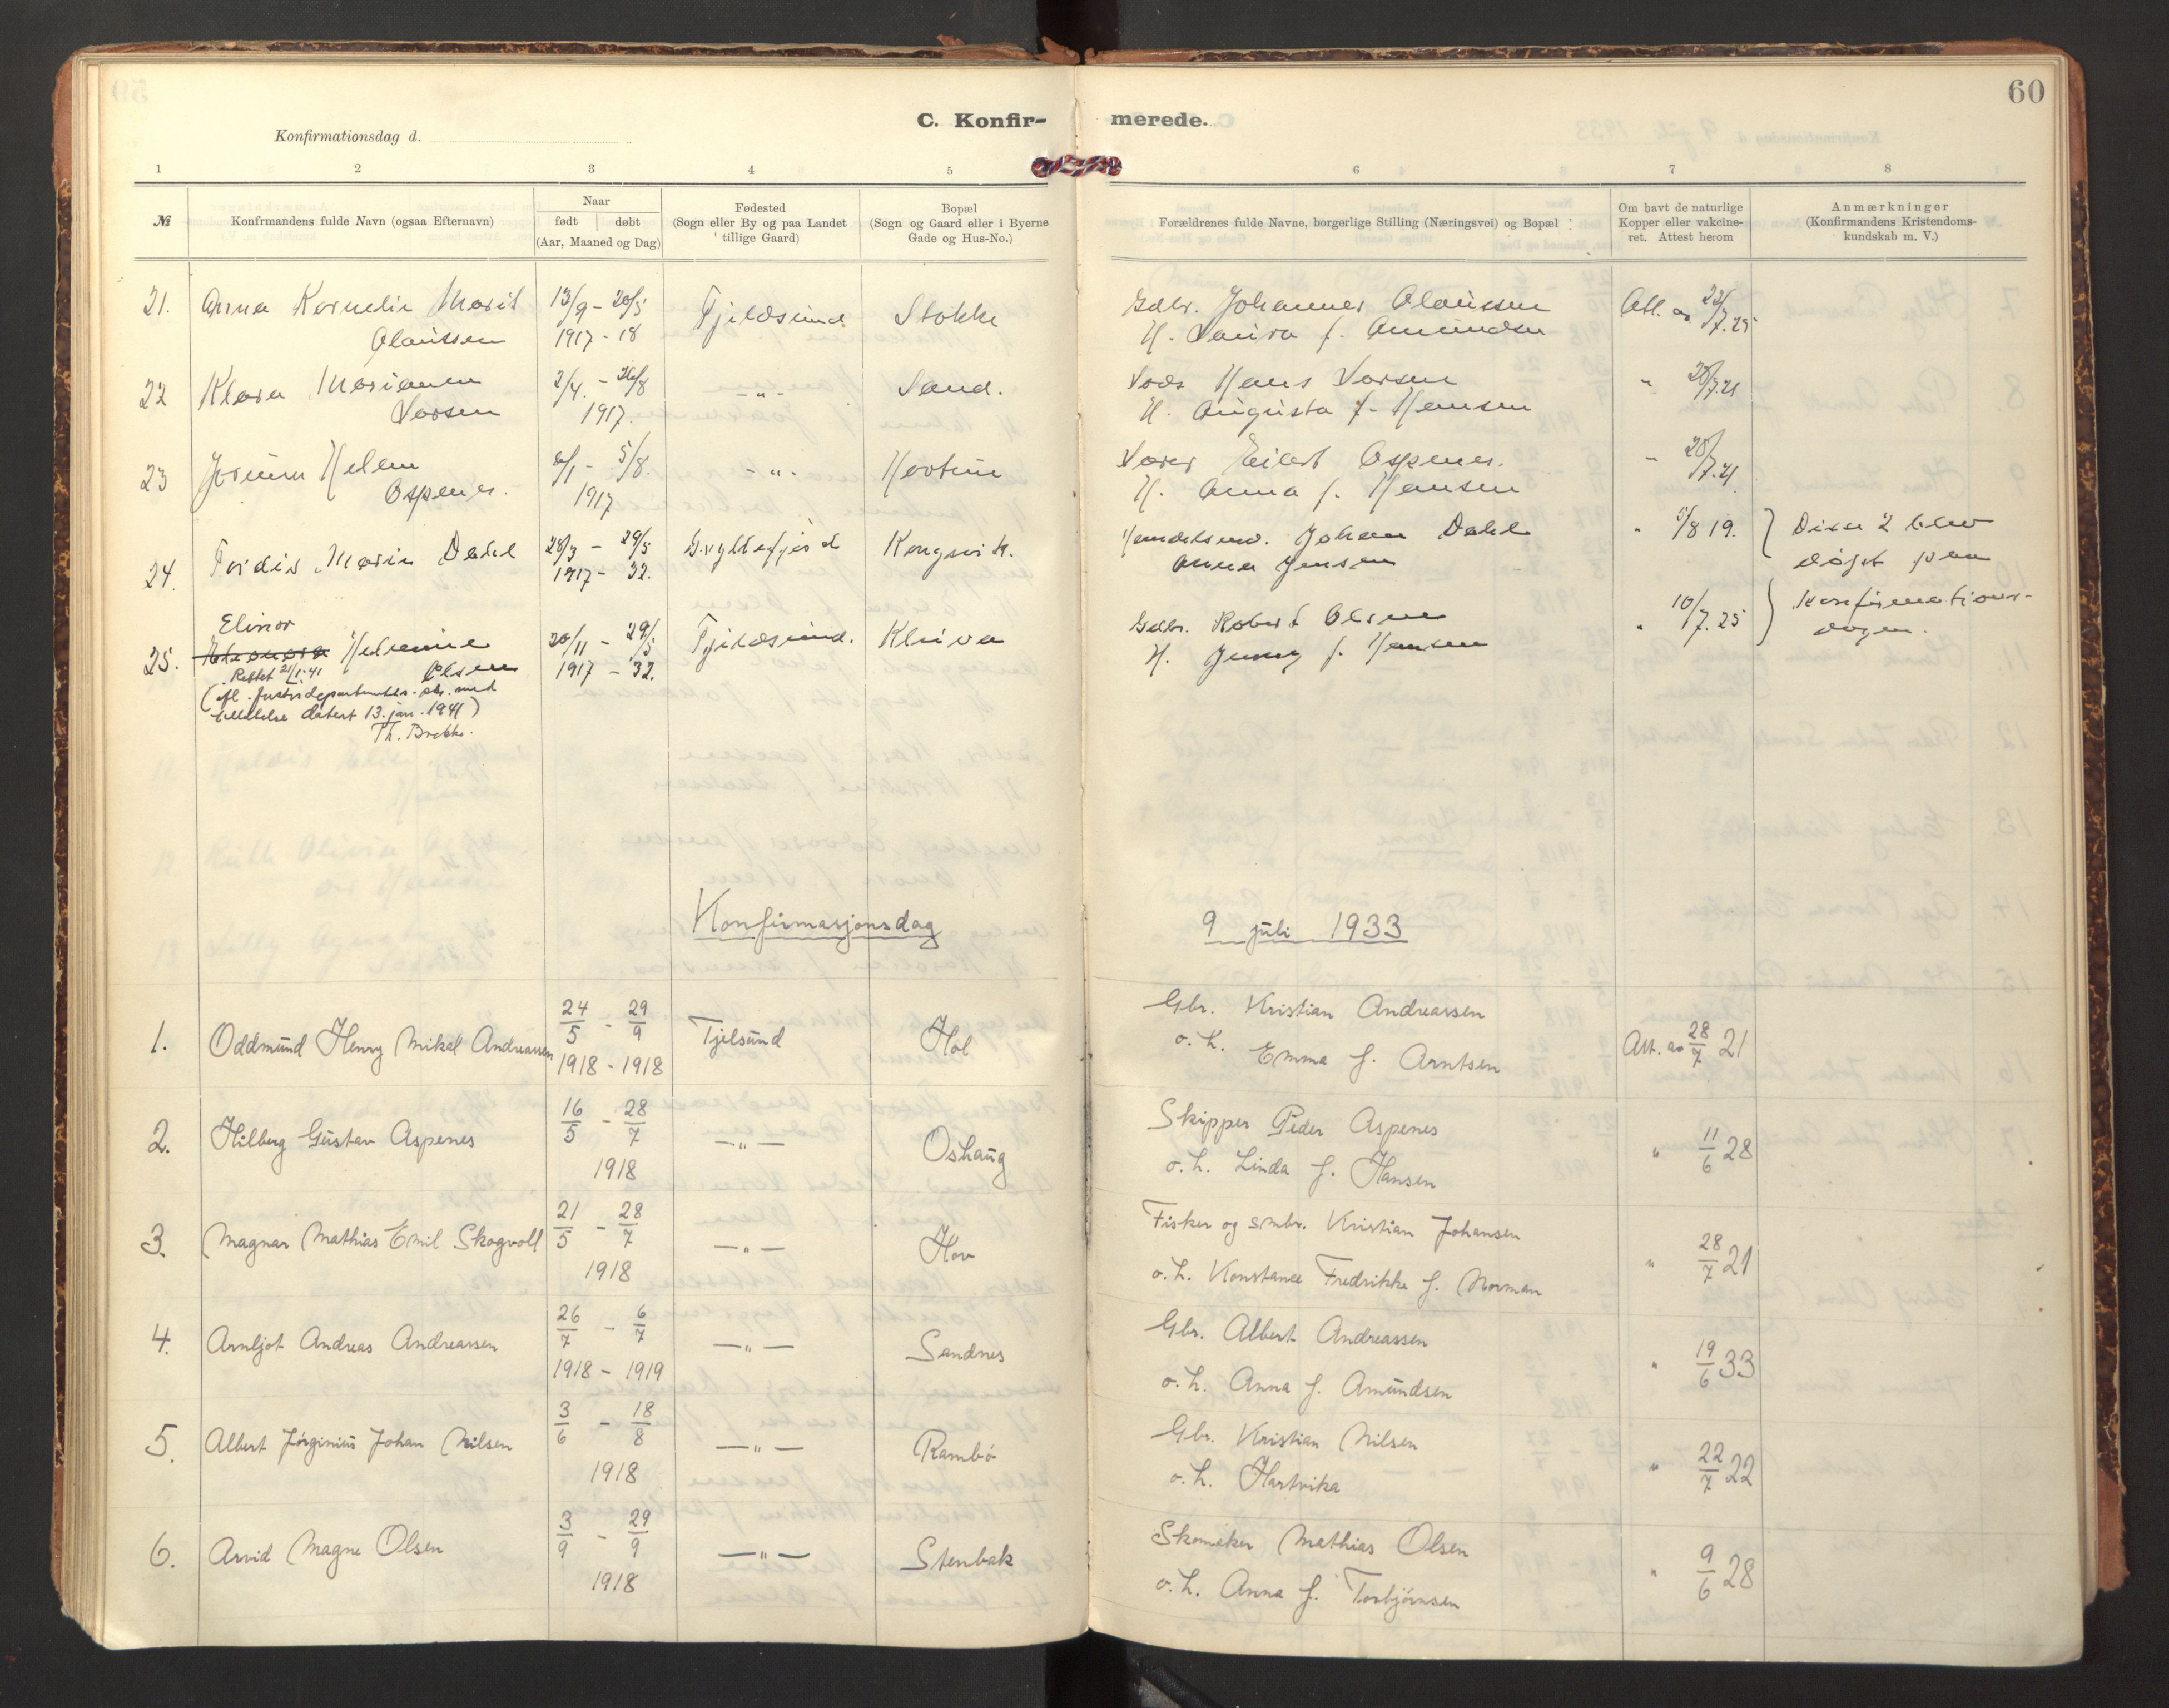 60
C. Konfir- merede.
Konfirmationsdag d.
1 2 3 4 5 6 7 8
№
Konfirmandens fulde Navn (ogsaa Efternavn)
Naar
født døbt
(Aar, Maaned og Dag)
Fødested
(Sogn eller By og paa Landet
tillige Gaard)
Bopæl
(Sogn og Gaard eller i Byerne
Gade og Hus-No.)
Forældrenes fulde Navne, borgerlige Stilling (Næringsvei) og Bopæl
Om havt de naturlige
Kopper eller vakcine-
ret. Attest herom
Anmærkninger
(Konfirmandens Kristendoms-
kundskab m. V.)
21. Anna Kornelie Marit 13/9 - 20/5 Fjeldsund Stokke Gdbr. Johannes Olaussen Att. av 22/7.25
Olaussen 1917 - 18 H. Laura f. Amundsen
22 Klara Marianne 2/4. - 26/8 - " - Sand. Hans Larsen " 28/7.21
Larsen 1917. H. Augusta f. Hansen
23 Helene 5/8. - " - Eilert Aspenes. " 28/7.21
Aspenes. 1917 H. Anna f. Hansen
24. Tordis Marie Dahl 28/3 - 29/5 Kongsvik. Johan Dahl " 5/8 19. } Disse 2 blev
1917 - 32. Anna Jensen døpt paa
Elinor
25. Eleonora Helmine 20/11 - 29/5 Fjeldsund. Kleiva Gdbr. Robert Olsen " 10/7.25 } Konfirmations-
Olsen 1917 - 32. H. Jenny f. Hansen dagen.
Rettet 21/1-41
(ifl. Justisdepartementets skr. med
tillatelse datert 13. jan. 1941)
Th. Brekke.
Konfirmasjonsdag 9 juli 1933
1. Oddmund Henry Mikal Andreassen 24/5 - 29/9 Tjelsund Hol Gbr. Kristian Andreassen Att. av 28/7 21
1918 - 1918 o. h. Emma f. Arntsen
2. Hilberg Gustav Aspenes 16/5 - 28/7 — " — Oshaug Skipper Peder Aspenes " 11/6 28
1918 o. h. Linda f. Hansen
3. Magnar Mathias Emil Skogvoll 21/5 - 28/7 — " — Hov Fisker og smbr. Kristian Johansen " 28/7 21
1918 o. h. Konstanse Fredrikke f. Norman
4. Arnljot Andreas Andreassen 26/7 - 6/7 — " — Sandnes Gbr. Albert Andreassen " 19/6 33
1918 - 1919 o. h. Anna f. Amundsen
5. Albert Jørginius Johan Nilsen 3/6 - 18/8 — " — Rambø Gbr. Kristian Nilsen " 22/7 22
1918 o. h. Hartvika
6. Arvid Magne Olsen 3/9 - 29/9 — " — Stenbak Skomaker Mathias Olsen " 9/6 28
1918 o. h. Anna f. Torbjørnsen